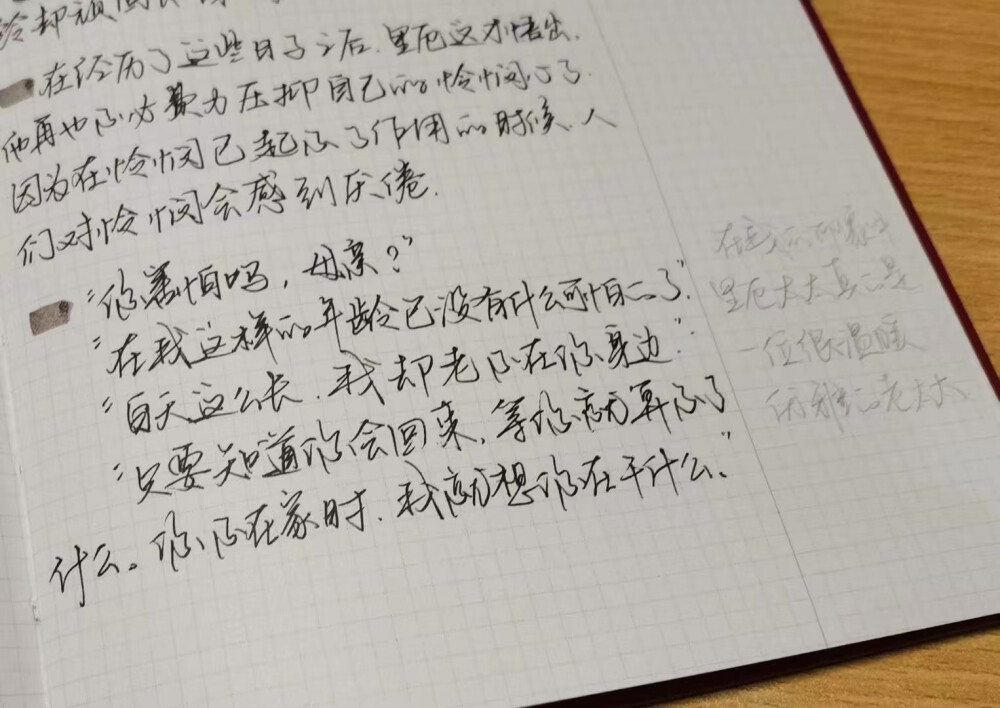 冷却顽固
在经历了这些日子之后，里厄这才悟出，
他再也不必费力压抑自己的怜悯心了，
因为在怜悯已起不了作用的时候，人
们对怜悯会感到厌倦。
“你害怕吗，母亲？”
“在我这样的年龄已没有什么可怕的了。”
“白天这么长，我却老不在你身边。”
“只要知道你会回来，等你就算不了
什么。你不在家时，我就想你在干什么。”
在我的印象中
里厄太太真的是
一位很温暖
优雅的老太太